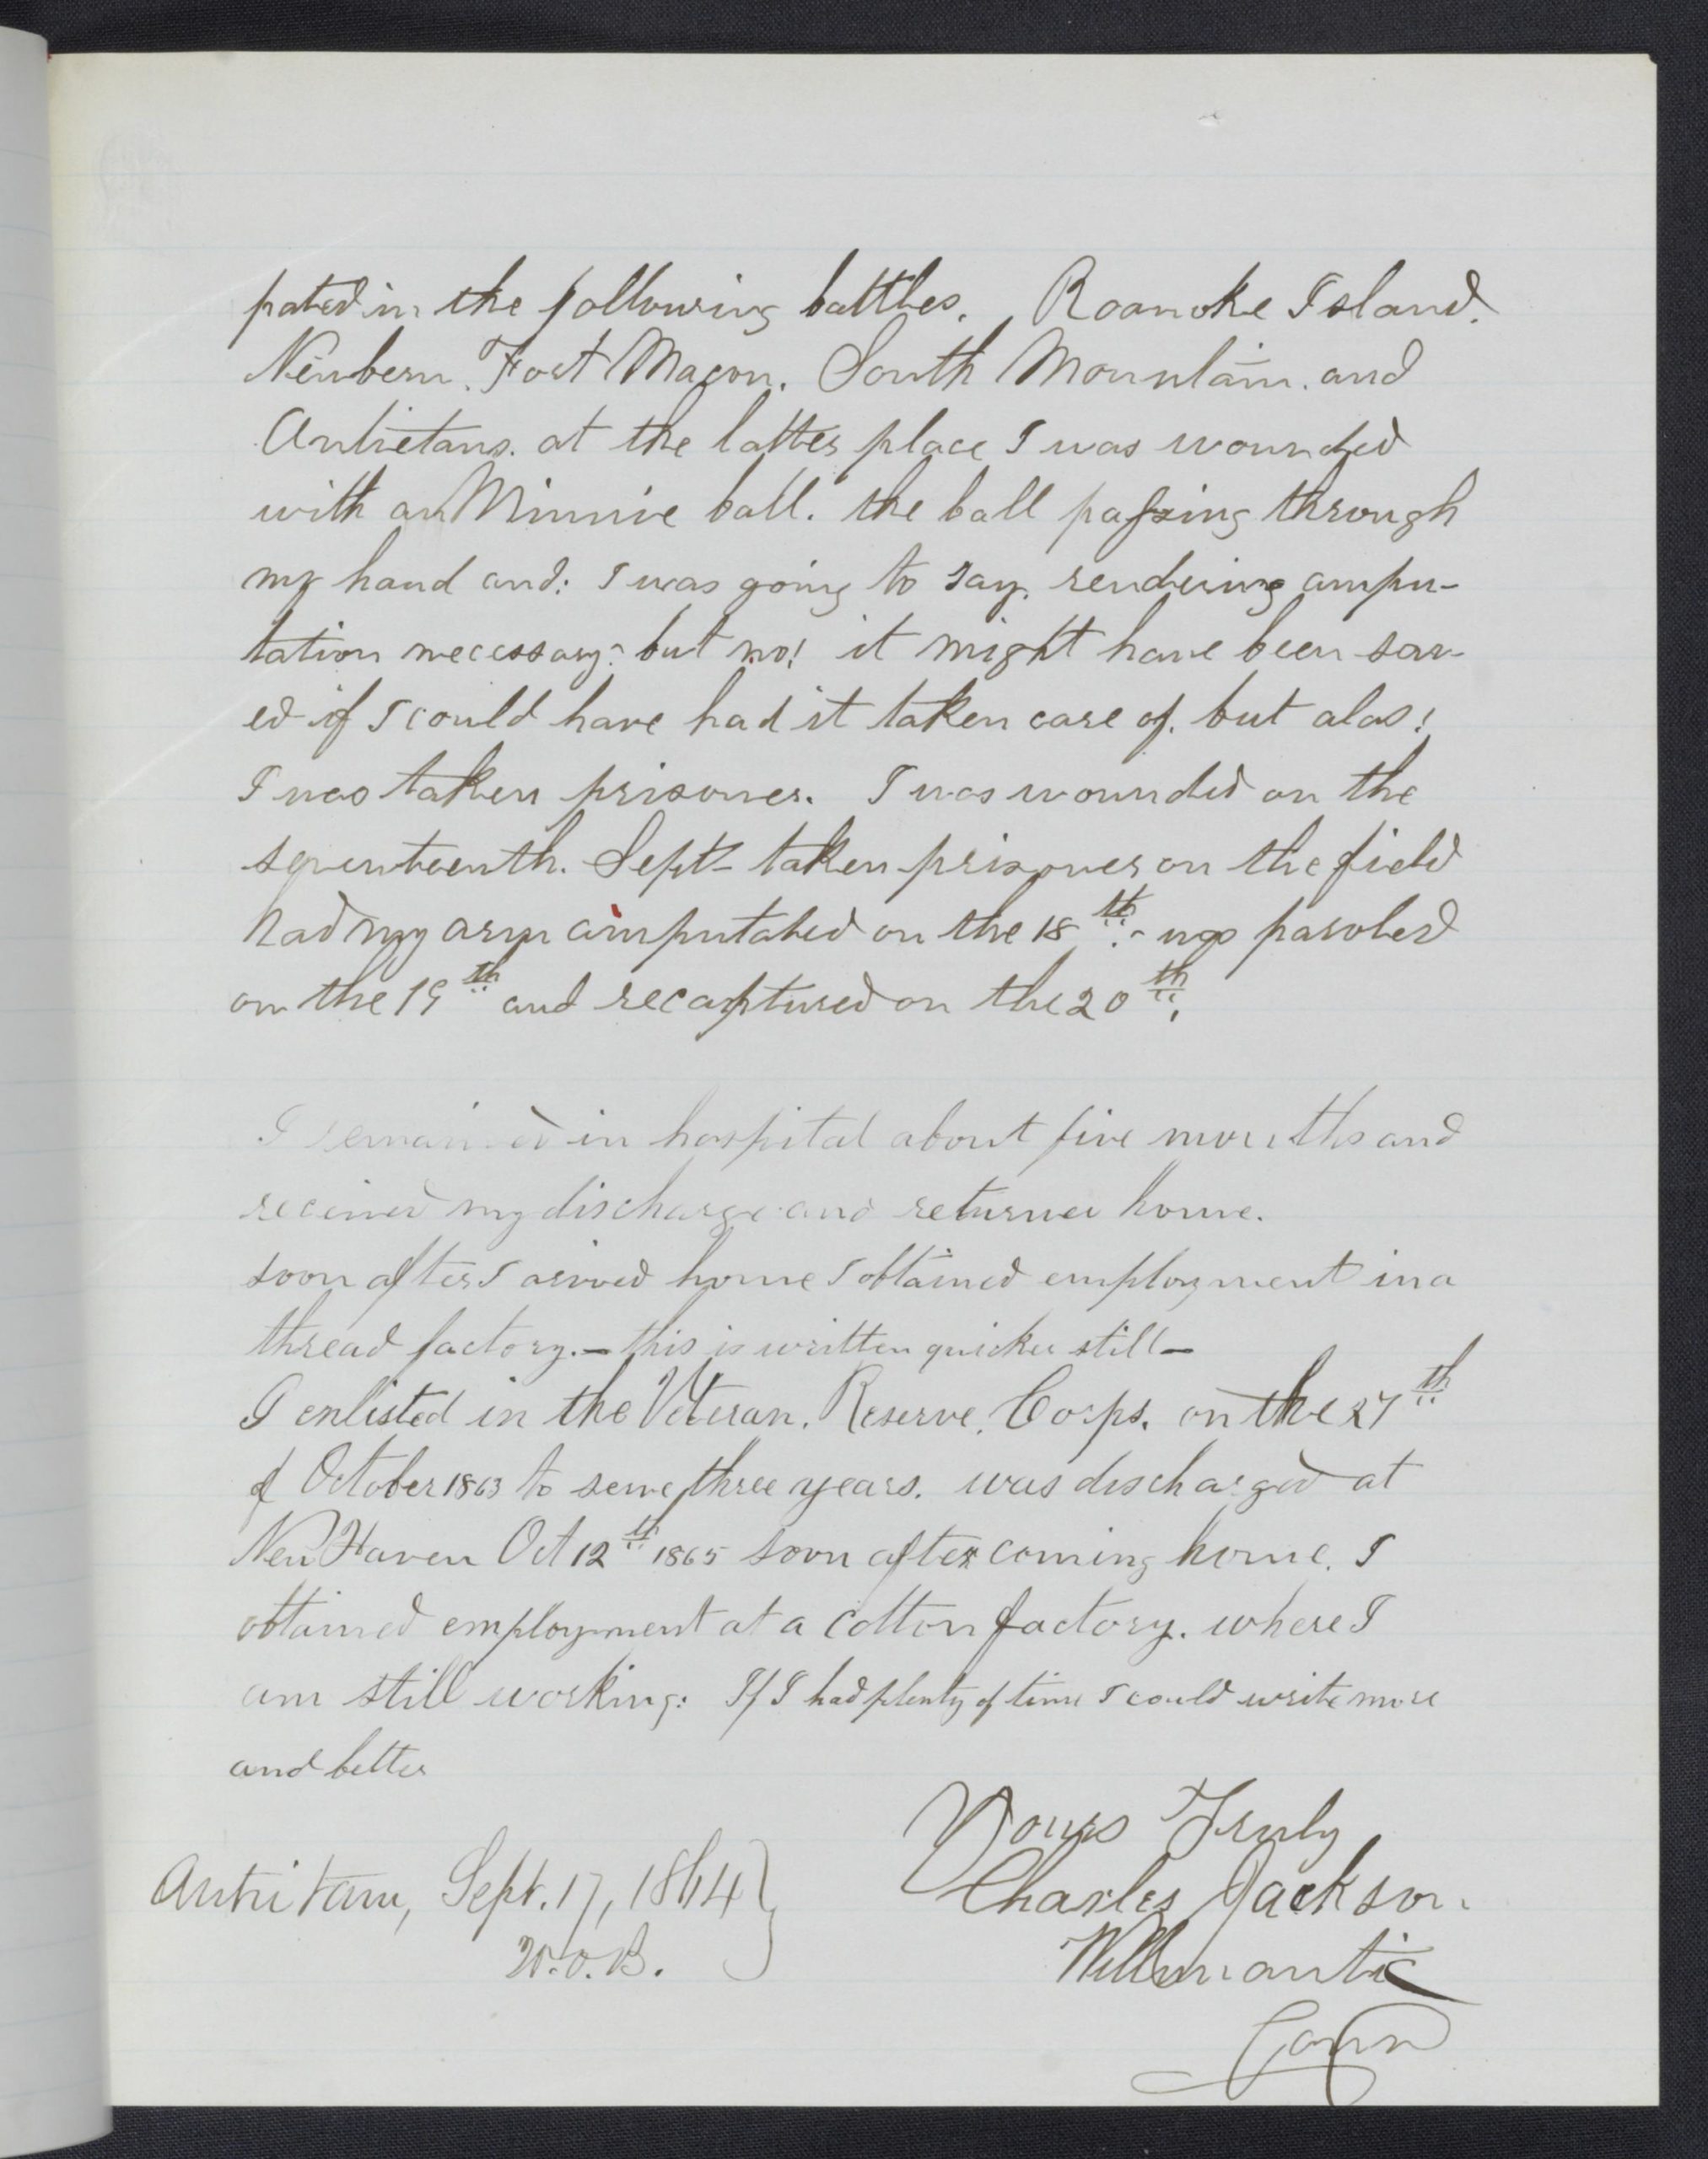 pated in the following battles. Roanoke Island.
Newbern. Fort Macon. South Mountain. and
Antietam. at the latter place I was wounded
with an Minnie ball. the ball passing through
my hand and: I was going to say. rendering ampu-
tation necessary: but no! it might have been sav-
ed if I could have had it taken care of. but alas!
I was taken prisoner. I was wounded on the
seventeenth. Sept- taken prisoner on the field
had my arm amputated on the 18th.- was paroled
on the 19th and recaptured on the 20th.
I remained in hospital about five months and
received my discharge and returned home.
soon after I arived home I obtained employment in a
thread factory. - this is written quicker still -
I enlisted in the Veteran. Reserve. Corps. on the 27th
of October 1863 to serve three years. was discharged at
New Haven Oct 12th 1865 soon after coming home. I
obtained employment at a cotton factory. where I
am still working: If I had plenty of time I could write more
and better
Yours Truly
Charles Jackson.
Willimantic
Conn
Antietam, Sept. 17, 1864
W.O.B.